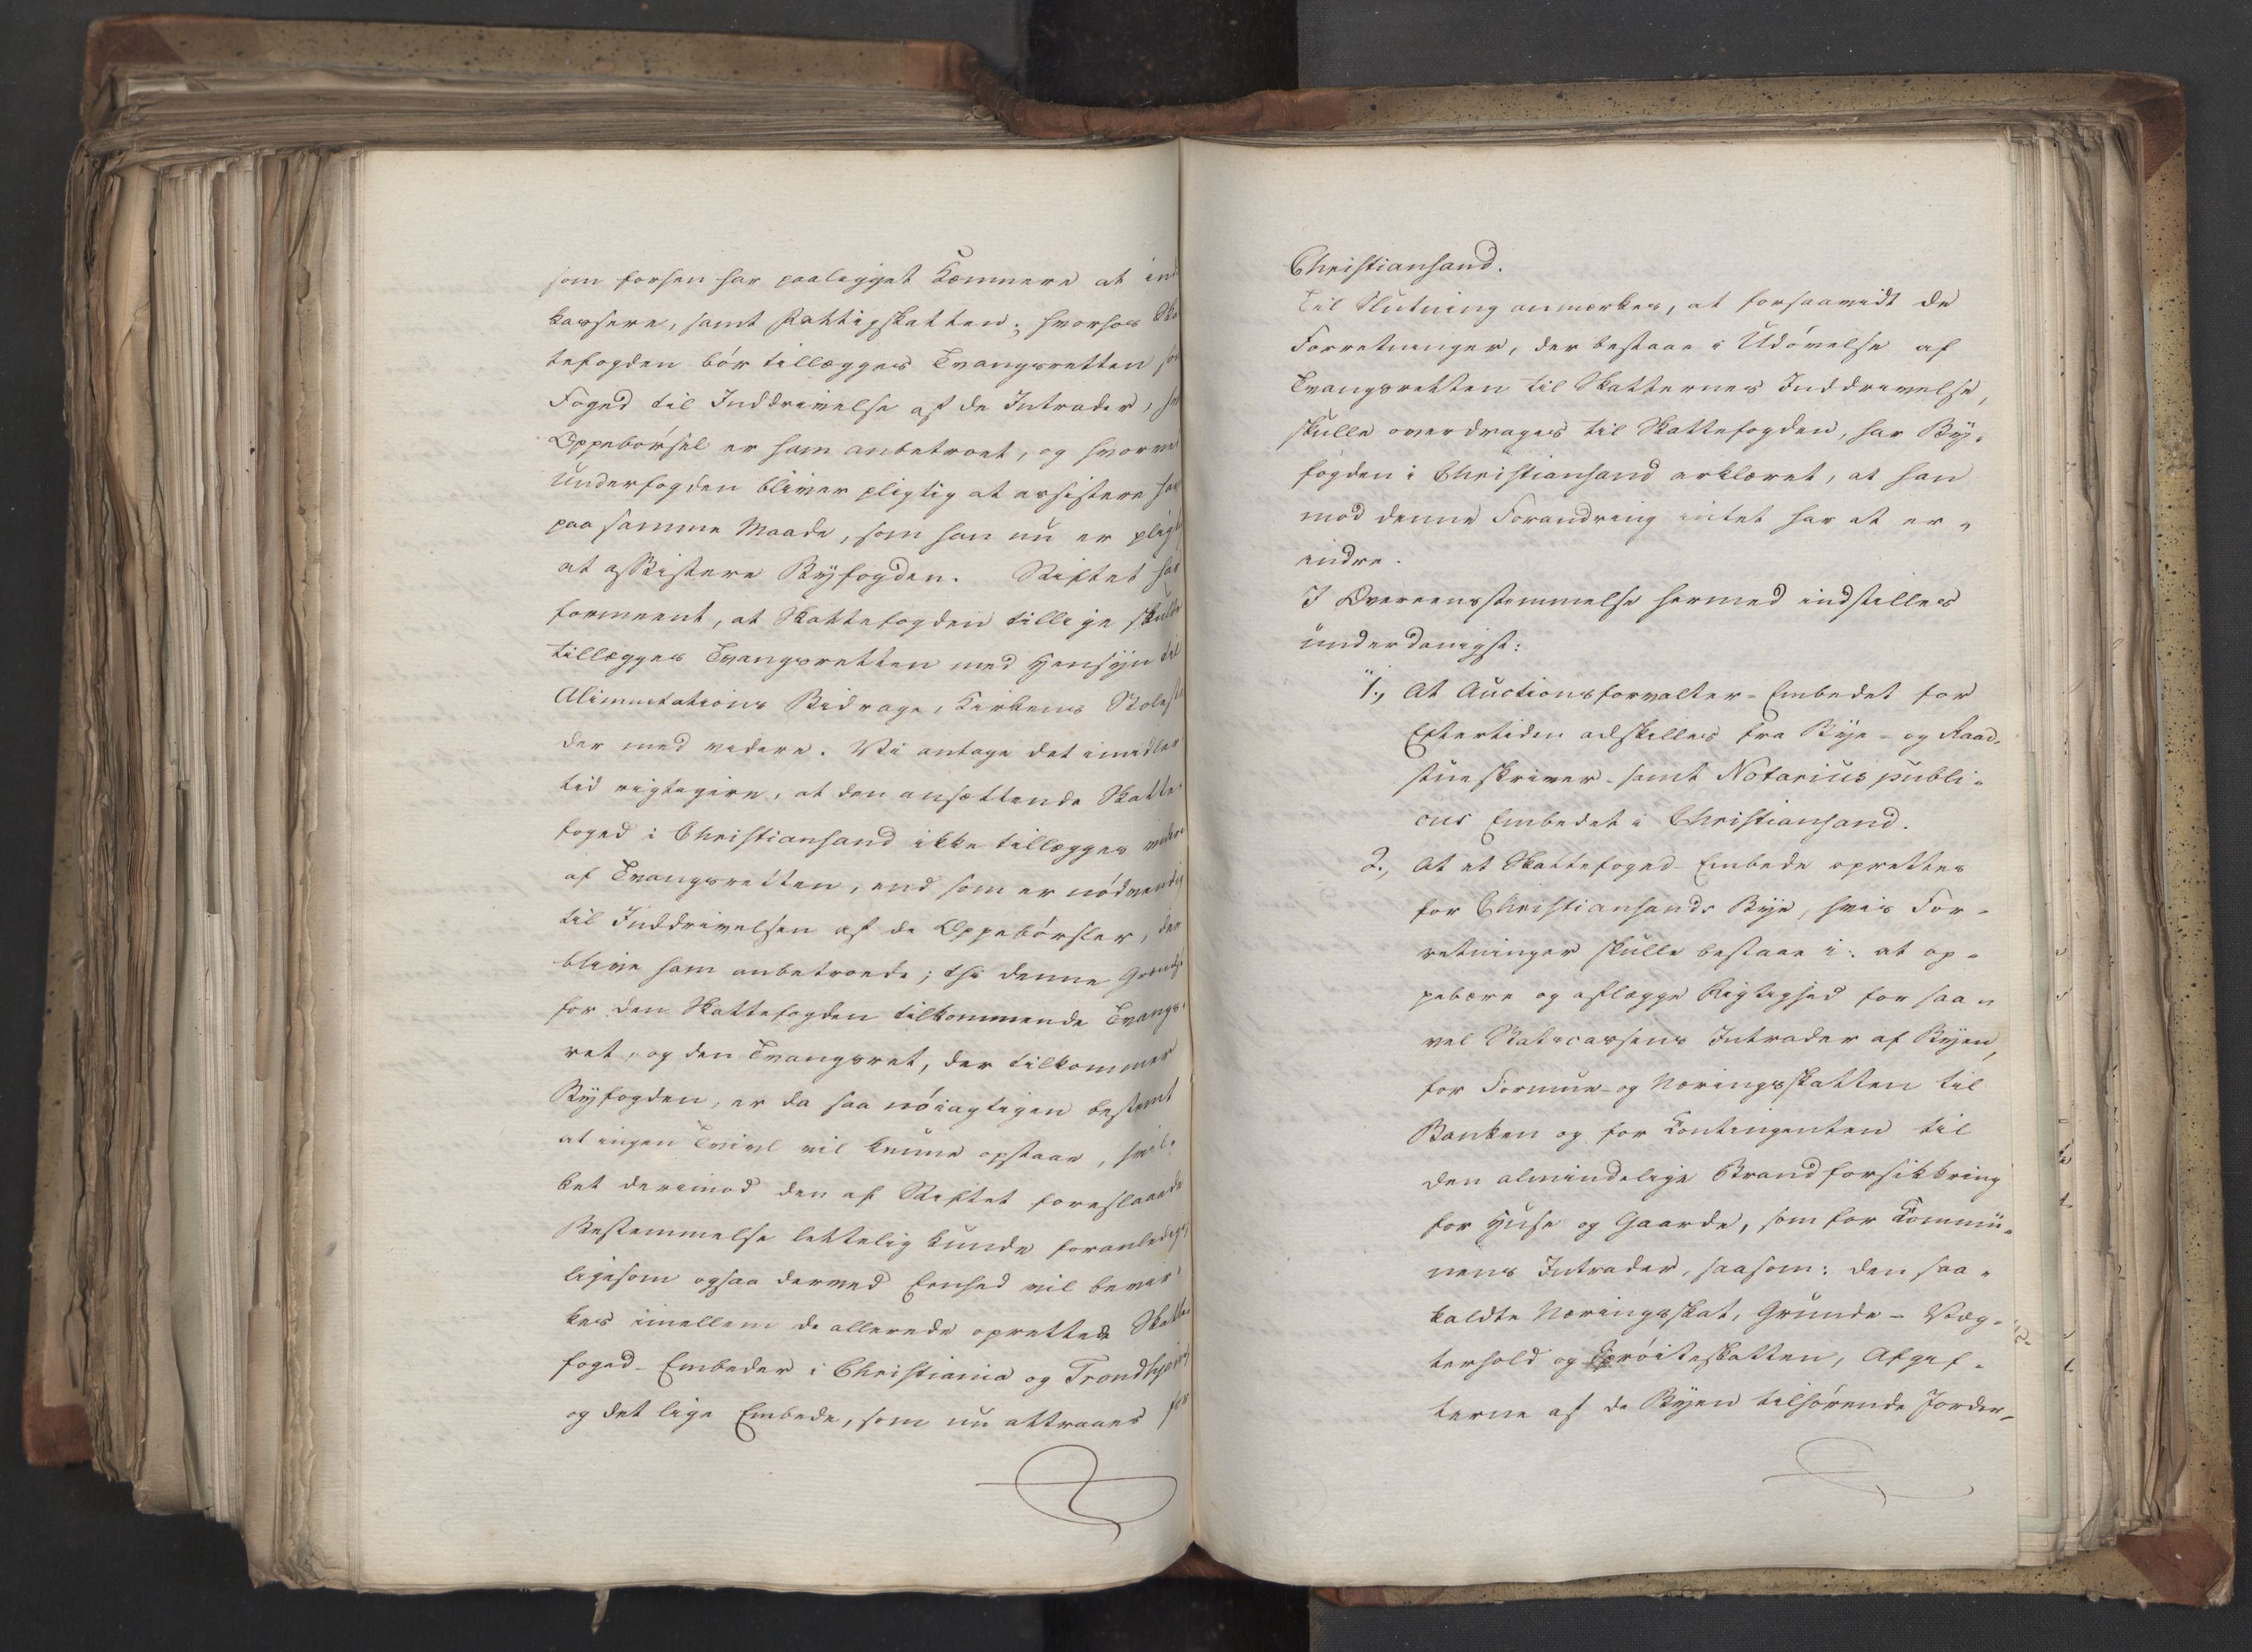 som forhen har paaligget Kæmnere at ind
kassere, samt Fattigskatten; hvorhos Ska
tefogden bör tillægges Tvangsretten so
Foged til Inddrivelse af de Intrader, hvis
Oppebörsel er ham anbetroet, og hvorved
Underfogden bliver pligtig at assistere ham
paa samme Maade, som han nu er pligtig
at assistere Byfogden. Stiftet har
formeent, at Skattefogden tillige skulde
tillægges Tvangsretten med Hensyn til
Alimentations Bidrage, Kirkens Stolesta
der med videre. Vi antage det imidler
tid rigtigere, at den ansættende Skatte-
foged i Christiansand ikke tillægges videre
af Tvangsretten, end som er nödvendig
til Inddrivelsen af de Oppebörsler, der
blive ham anbetroede; thi denne Grændse
for den Skattefogden tilkommende Tvangs-
ret, og den Tvangsret, der tilkommer
Byfogden, er da saa nöiagtigen bestemt
at ingen Tvivl vil kunne opstaae, hvil-
ket derimod den af Stiftet foreslaaede
Bestemmelse lettelig kunde foranledige,
ligesom ogsaa derved Eenhed vil bevir-
kes imellem de allerede oprettede Skatte
foged-Embeder i Christiania og Trondhjem
og det lige Embede, som nu attraaes for
Christiansand.
Til Slutning anmærkes, at forsaavidt de
Forretninger, der bestaae i Udövelse af
Tvangsretten til Skatternes Inddrivelse,
skulle overdrages til Skattefogden, har By-
fogden i Christiansand erklæret, at han
mod denne Forandring intet har at er-
indre.
I Overeensstemmelse hermed indstilles
underdanigst:
"1., At Auctionsforvalter-Embedet for
Eftertiden adskilles fra Bye- og Raad-
stueskriver- samt Notarius publi-
cus Embedet i Christiansand.
2., At et Skattefoged-Embede oprettes
for Christiansands Bye, hvis For-
retninger skulle bestaae i: at op-
pebære og aflægge Rigtighed for saa-
vel Statscassens Intrader af Byen,
for Formue- og Næringsskatten til
Banken og for Kontingenten til
den almindelige Brandforsikkring
for Huse og Gaarde, som for Kommu-
nens Intrader, saasom: den saa-
kaldte Næringsskat, Grunde- Væg-
terhold og Spröiteskatten, Afgif-
terne af de Byen tilhörende Jorder-